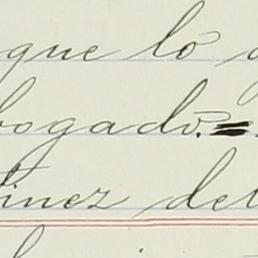 que ló
bogado.=
inez del